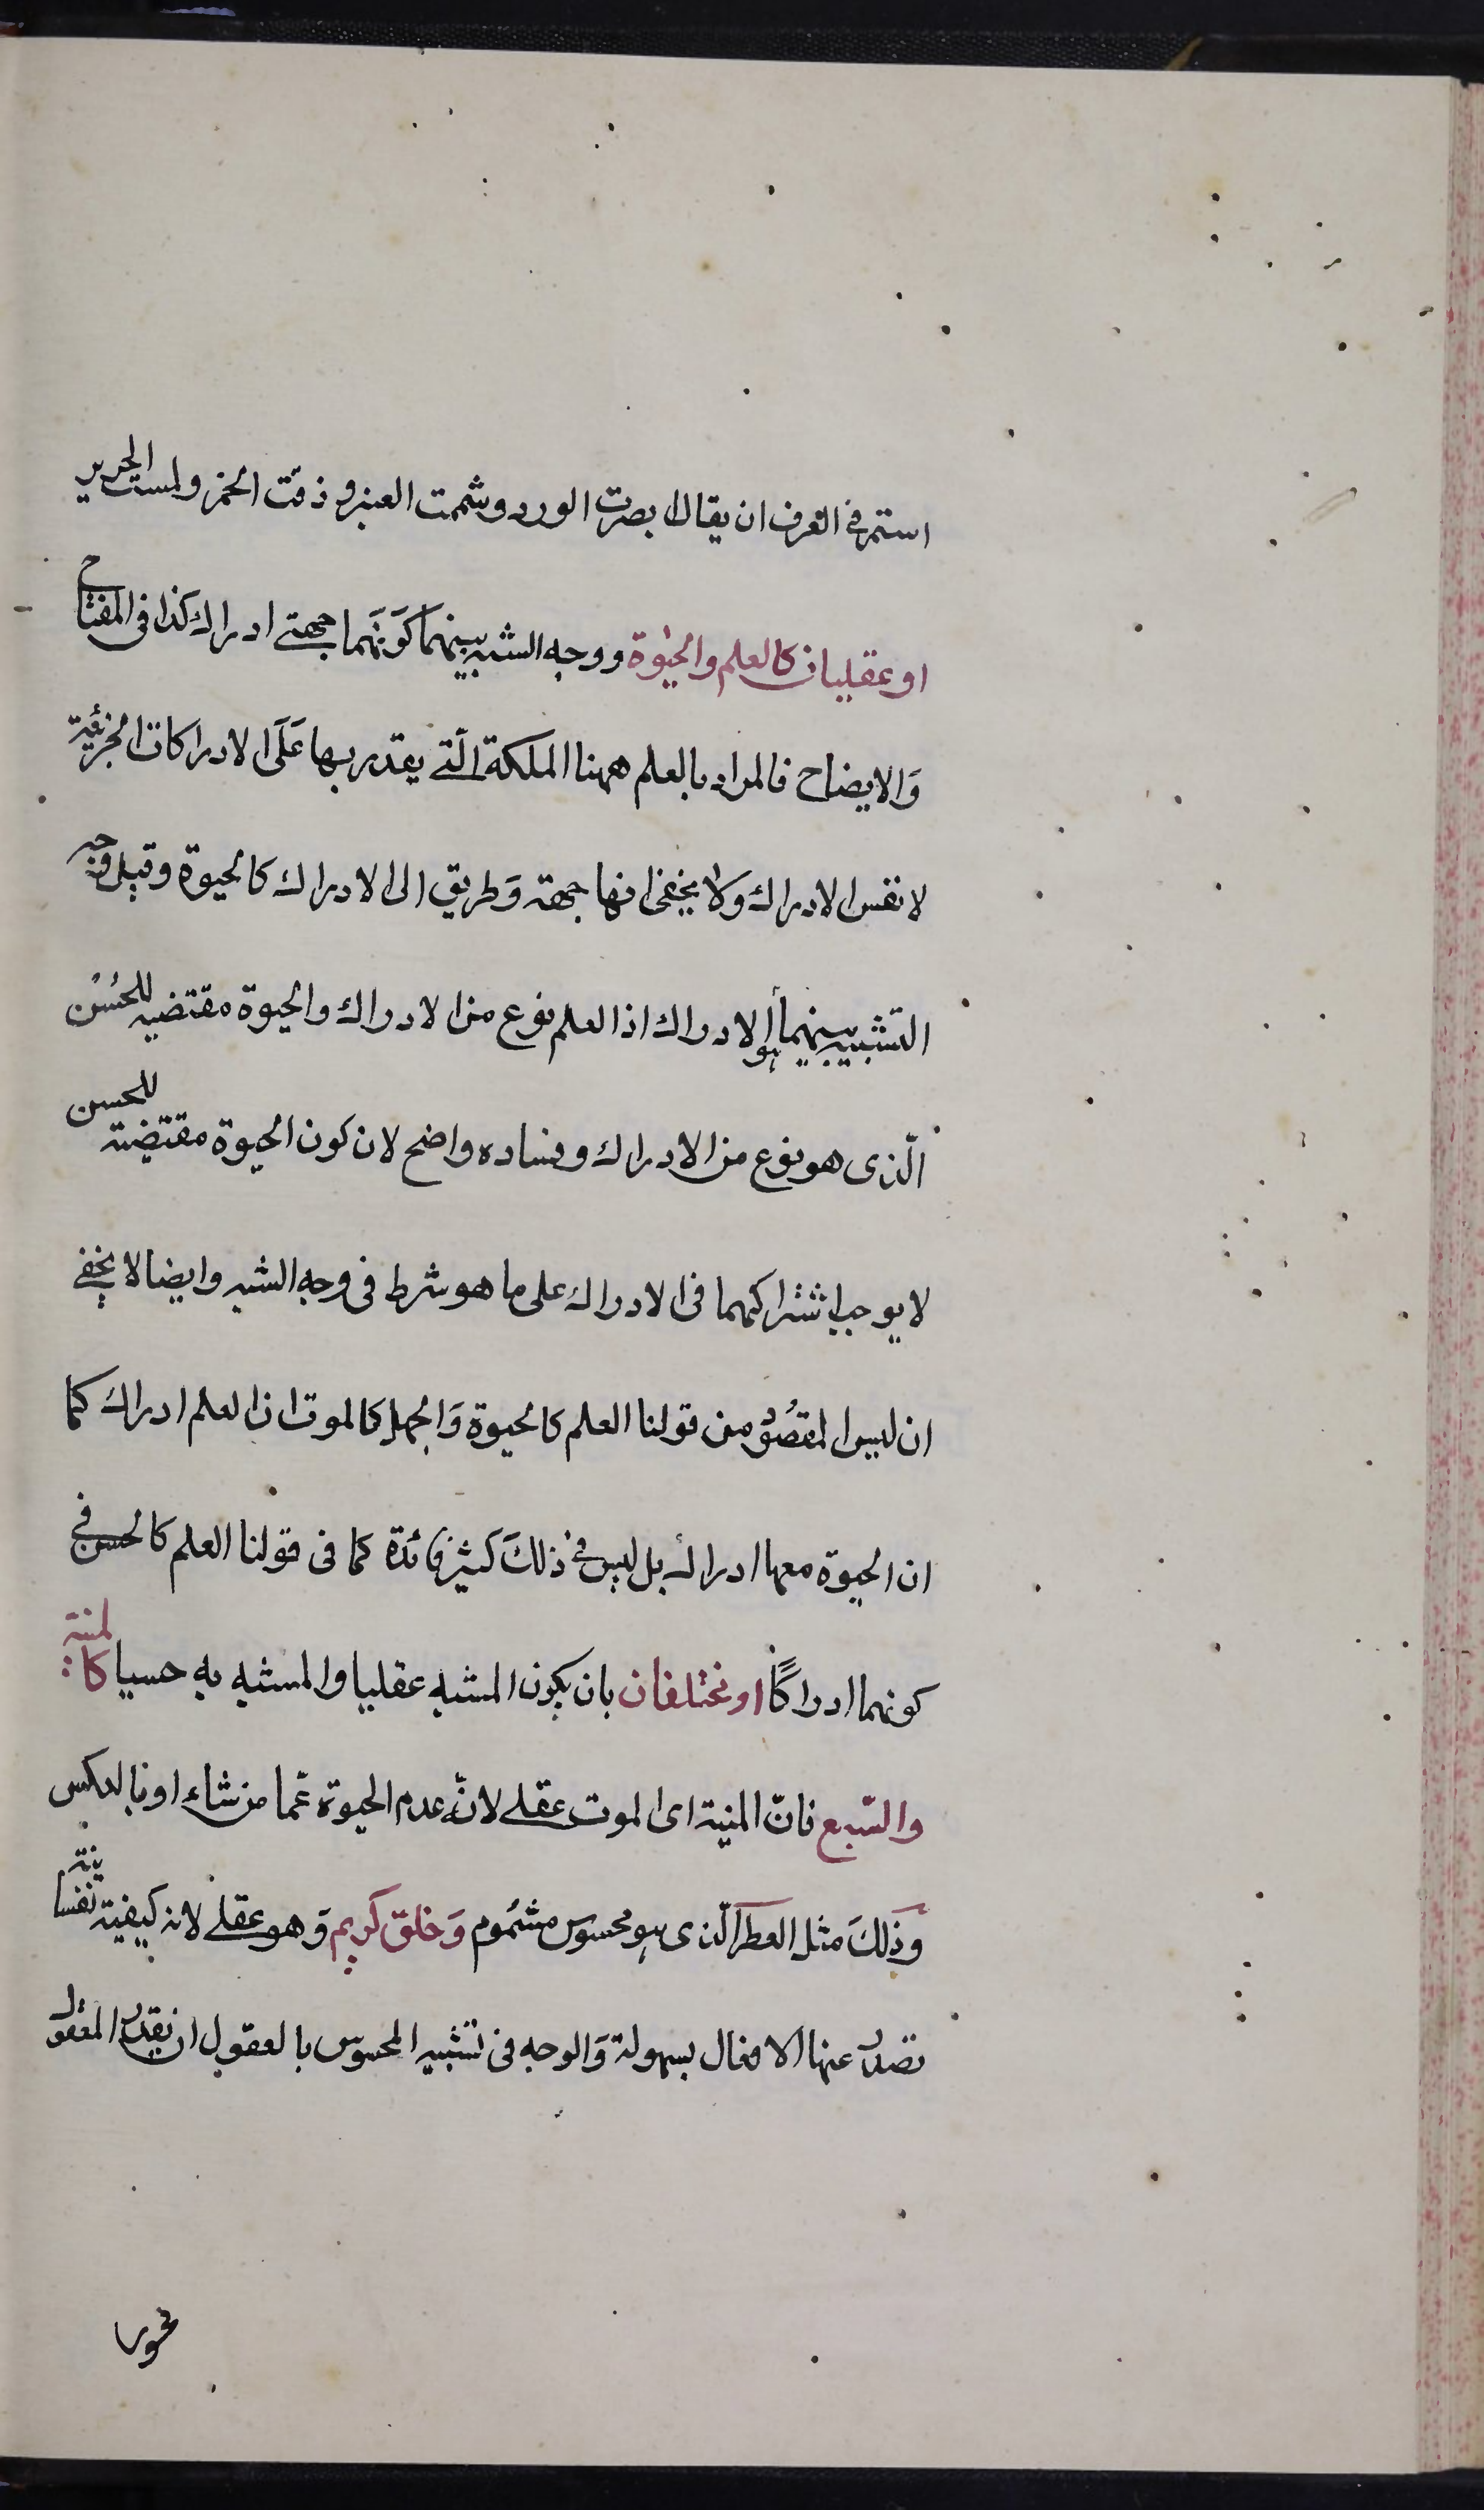 استمر فى العرف ان يقال ابصرت الورد وشممت العنبر و ذقت الخمر ولمست الحرير
او عقليان كالعلم والحيوة ووجه الشبه بينهما كَوْنَهُما جهتے ادراك كذا فى المفتاح
وَالايضاح فالمراد بالعلم ههنا الملكة الّتے يقدر بها عَلَى الادراكات الجزئية
لا نفس الادراك ولا يخفى انها جهة وَطريق الى الادراك كالحيوة وقيل وجه
التشبيه بينهما هو الادراك اذا العلم نوع من الادراك والحيوة مقتضيه للحُسُن
الّذى هو نوع من الادراك وفساده واضح لان كون الحيوة مقتضية للحسن
لا يوجب اشتراكهما فى الادراك على ما هو شرط فى وجه الشبه وايضا لا يخفے
ان ليس المقصُوْد من قولنا العلم كالحيوة وَالجهل كالموت ان العلم ادراك كما
ان الحيوة معها ادراك بل ليس فى ذلكَ كثير فائدة كما فى قولنا العلم كالحسن فى
كونهما ادراكًا او مختلفان بان يكون المشبه عقليا والمشبه به حسيا كالمنية
والسّبع فانّ المنية اى الموت عقلے لانّه عدم الحيوة عمّا من شاء او بالعكس
وَذلكَ مثل العطر الّذى هو محسوس مشموم وَخلق كريم وَهو عقلے لانه كيفية نفسانية
تصدر عنها الافعال بسهولة وَالوجه فى تشبيه المحسوس بالعقول ان يقدر المعقول